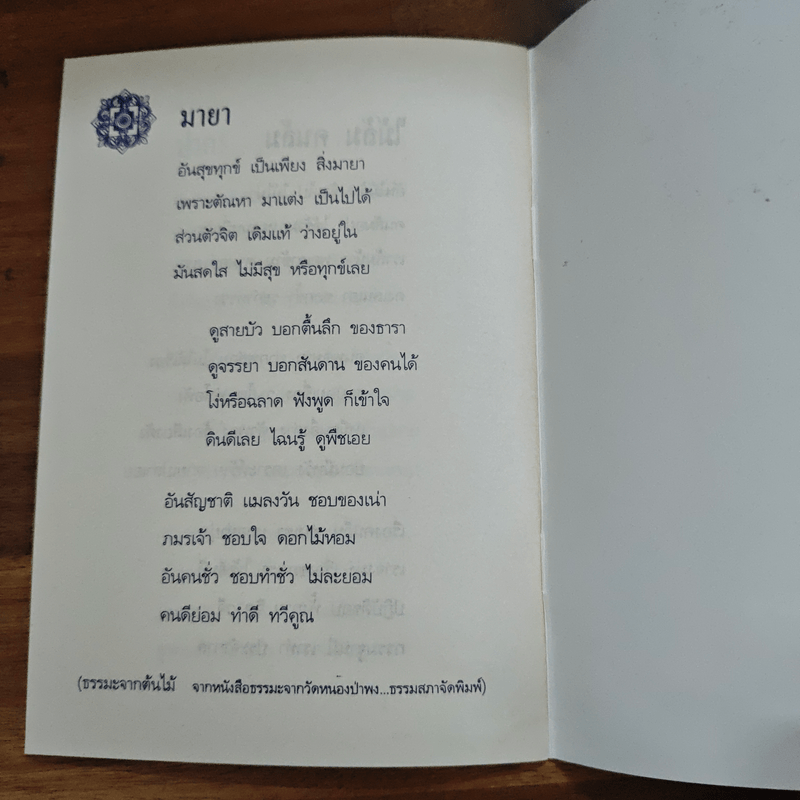 มายา
อันสุขทุกข์ เป็นเพียง สิ่งมายา
เพราะตัณหา มาแต่ง เป็นไปได้
ส่วนตัวจิต เดิมแท้ ว่างอยู่ใน
มันสดใส ไม่มีสุข หรือทุกข์เลย
ดูสายบัว บอกตื้นลึก ของธารา
ดูจรรยา บอกสันดาน ของคนได้
โง่หรือฉลาด ฟังพูด ก็เข้าใจ
ดินดีเลย ไฉนรู้ ดูพืชเอย
อันสัญชาติ แมลงวัน ชอบของเน่า
ภมรเจ้า ชอบใจ ดอกไม้หอม
อันคนชั่ว ชอบทำชั่ว ไม่ละยอม
คนดีย่อม ทำดี ทวีคูณ
(ธรรมะจากต้นไม้ จากหนังสือธรรมะจากวัดหนองป่าพง...ธรรมสภาจัดพิมพ์)